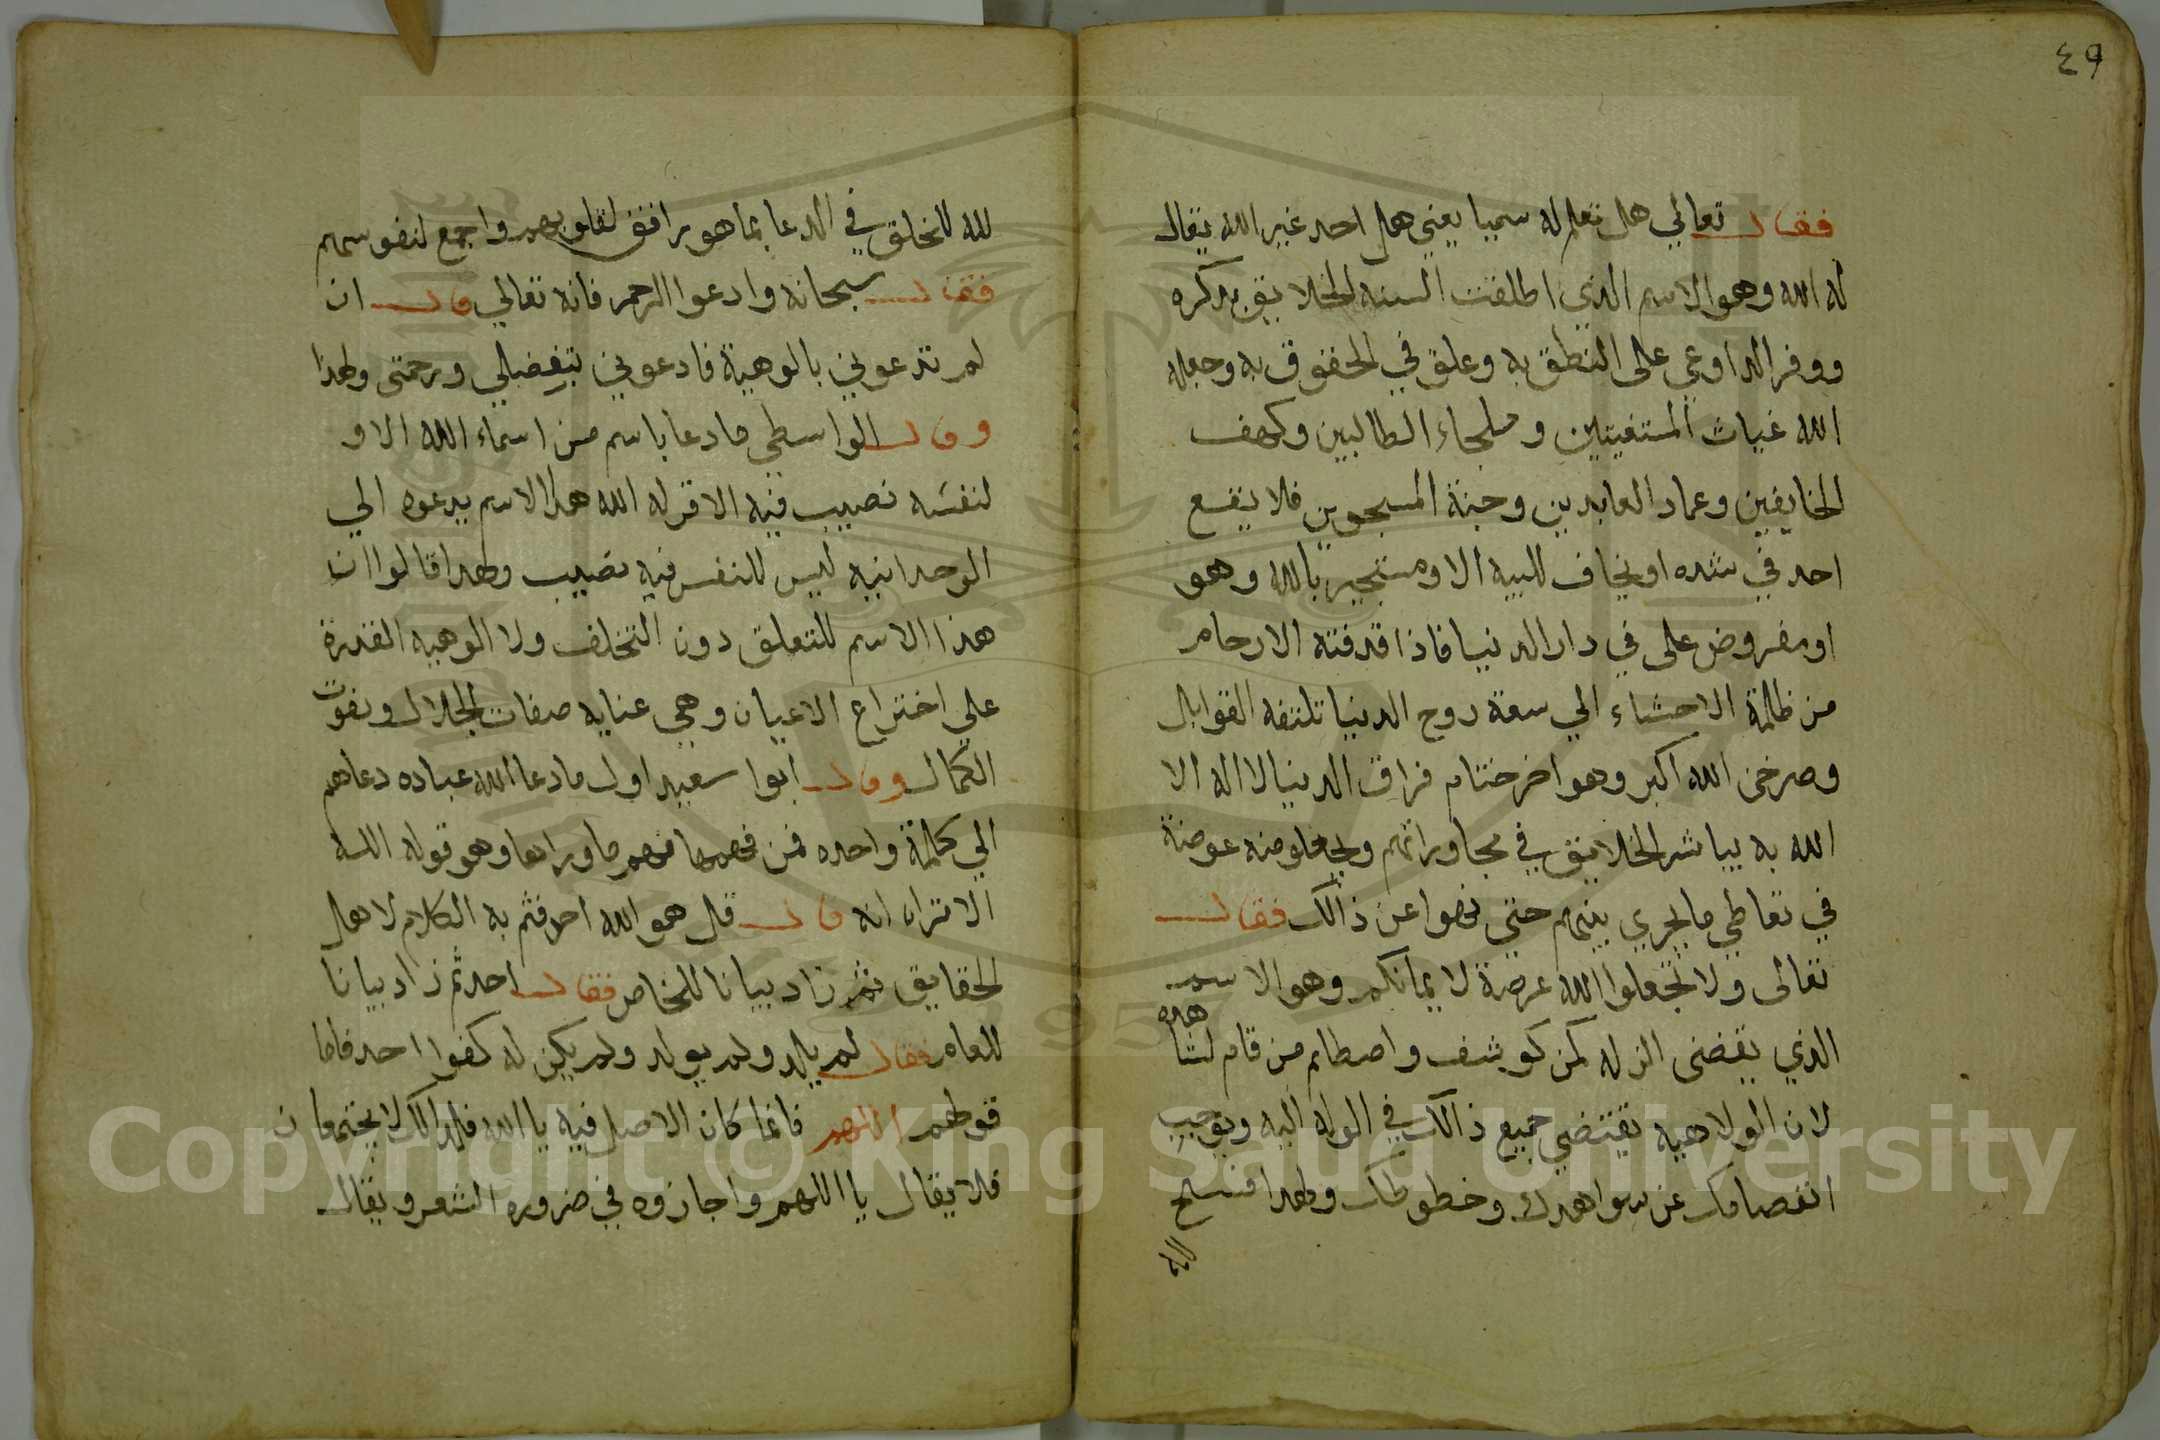 ٤٩
فقال تعالي هل تعلم له سميا يعني هل احد غير الله يقال
له الله وهو الاسم الذي اطلقت السنه الخلايق بذكره
ووفر الدواعي على النطق به وعلق في الحقوق به وجعله
الله غياث المستغيثين وملجاء الطالبين وكهف
الخايفين وعماد العابدين وجنة المسجونين فلا يقع
احد في شده او يخاف للبيه الا ومستجير بالله وهو
او مفروض على في دار الدنيا فاذا قدفته الارحام
من ظلمة الاحشاء الي سعة روح الدنيا تلتقه القوابل
وصرخن الله اكبر وهو اخر ختام فراق الدنيا لا اله الا
الله به يباشر الخلايق في محاوراتهم وجعلوه عرضة
في تعاطي ما يجري بينهم حتى نهوا عن ذالك فقال
تعالى ولا تجعلوا الله عرضة لايمانكم وهو الاسم
الذي يقضى الزله لمن كوشف واصطلم من قام لشاهده
لان الولاهية تقتضي جميع ذالك في الوله اليه ويوجب
انفصامك عن سواهدك وحظوظك ولهذا فسح
الله
لله للخلق في الدعا بما هو برافق لقلوبهم واجمع لنفوسهم
فقال سبحانه وادعوا الرحمن فانه تعالي قال ان
لم تدعوني بالوهية فادعوني بتفضلي ورحمتى ولهذا
وقال الواسطي ما دعا باسم من اسماء الله الا و
لنفسه نصيب فيه الا قوله الله هذا الاسم يدعوه الي
الوحدانيه ليس للنفس فيه نصيب ولهذا قالوا ان
هذا الاسم للتعلق دون التخلف ولا الوهيه القدرة
على اختراع الاعيان وهي عنايه صفات الجلال ونعوت
الكمال وقال ابوا سعيد اول ما دعا الله عباده دعاهم
الي كلمة واحده فمن فهمها فهم ما وراها وهو قوله الله
الا تراه انه قال قل هو الله احد فتم به الكلام لاهل
الحقايق ثم زاد بيانا للخاص فقال احد ثم زاد بيانا
للعام فقال لم يلد ولم يولد ولم يكن له كفوا احد فاما
قولهم اللهم فانما كان الاصل فيه يا الله فلذالك لا يجتمعان
فلا يقال يا اللهم واجازوه في ضروره الشعر ويقال
Copyright © King Saud University
1957